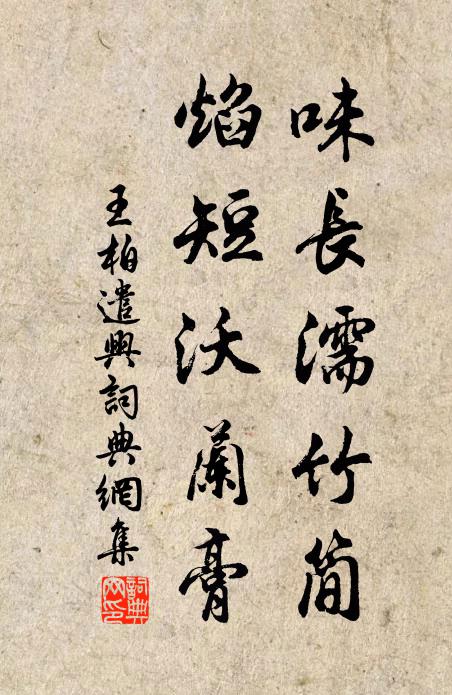 味長濡竹簡
焰短沃蘭膏
王柏遣興詞典網集